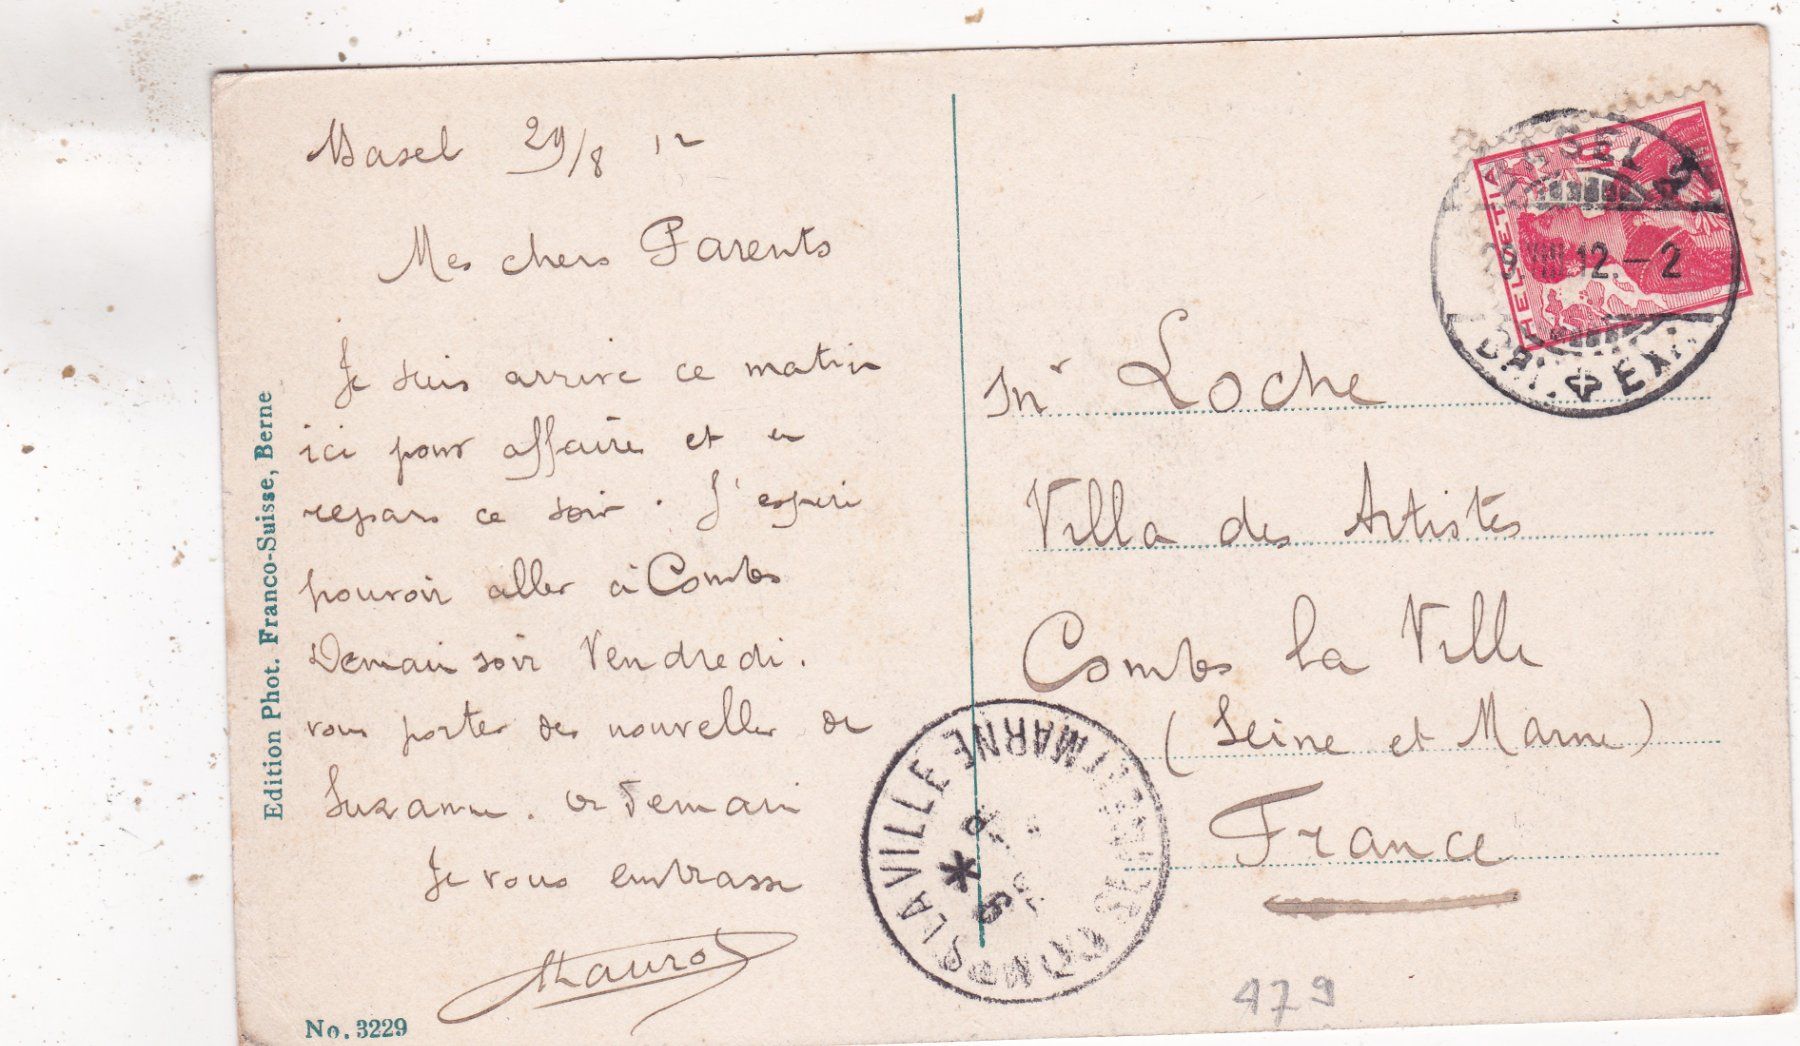 Basel 29/8 12
Mes chers Parents
Je suis arrivé ce matin
ici pour affaire et en
repars ce soir. J'espère
pouvoir aller à Combs
Demain soir Vendredi.
vous porter des nouvelles de
Suzanne. à Demain
Je vous embrasse
Edition Phot. Franco-Suisse, Berne
No. 3229
Mr Loche
Villa des Artistes
Combs la Ville
(Seine et Marne)
France
479
HELVETIA
BASEL
29.VIII.12.-2
COMBS LA VILLE
ET MARNE